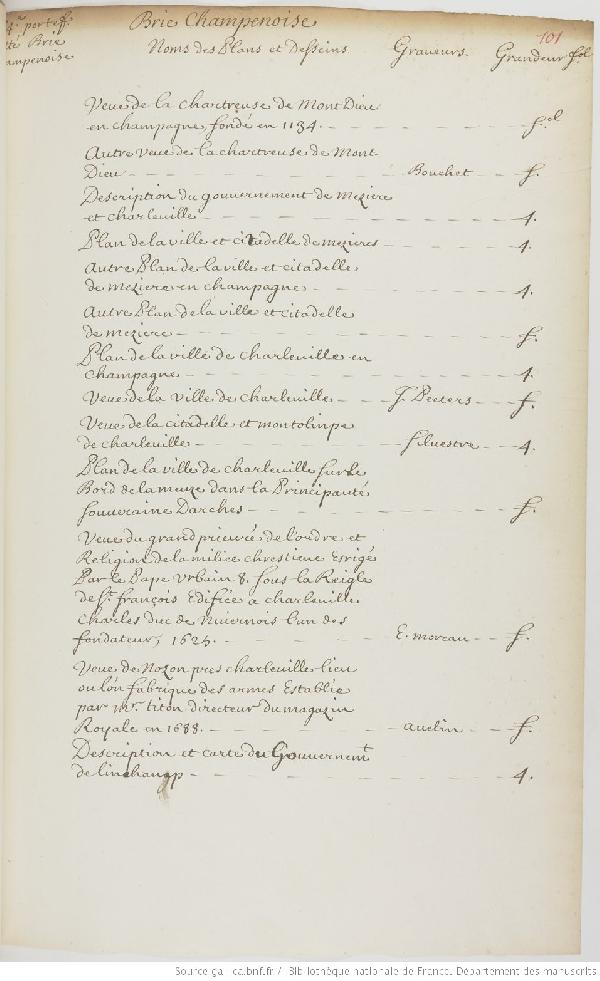 4.e portef.
Brie
Champenoise
Brie Champenoise
101
Noms des Plans et Desseins Graveurs. Grandeur fol
Veue de la chartreuse de Mont Dieu
en champagne, fondé en 1134. f.ol
Autre veue de la chartreuse de Mont
Dieu Bouchet f.
Description du gouvernement de Meziere
et charleville 4.
Plan de la ville et citadelle de mezieres 4.
autre Plan de la ville et citadelle
de meziere en champagne 4.
autre Plan de la ville et citadelle
de meziere f.
Plan de la ville de charleville en
champagne 4.
Veue de la ville de charleville J. Peeters f.
Veue de la citadelle et montolinpe
de charleville silvestre 4.
Plan de la ville de charleville sur le
Bord de la meuze dans la Principauté
souveraine Darches f.
Veue du grand prieuré de l'ordre et
Religion de la milice chrestiene Erigé
Par le Pape Urbain 8. sous la Reigle
de st. françois Edifiée a charleville
Charles duc de Nivernois l'un des
fondateurs, 1625. E. moreau f.
Veue de Nozon pres charleville lieu
ou l'on fabrique des armes Establie
par mr. titon directeur du magazin
Royale en 1688. avelin f.
Description et carte du Gouvernemt
de linchamp 4.
Source gallica.bnf.fr / Bibliothèque nationale de France. Département des manuscrits.